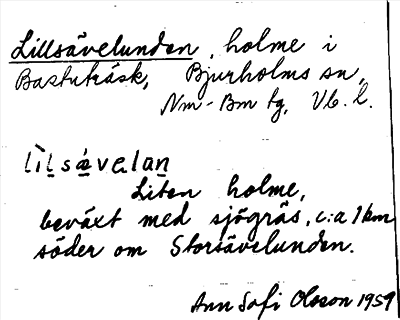 Lillsävelunden, holme i
Bastuträsk, Bjurholms sn,
Nm-Bm tg, Vb. l.
lìlsávelan
Liten holme,
beväxt med sjögräs, c:a 1 km
söder om Storsävelunden.
Ann Sofi Olsson 1959